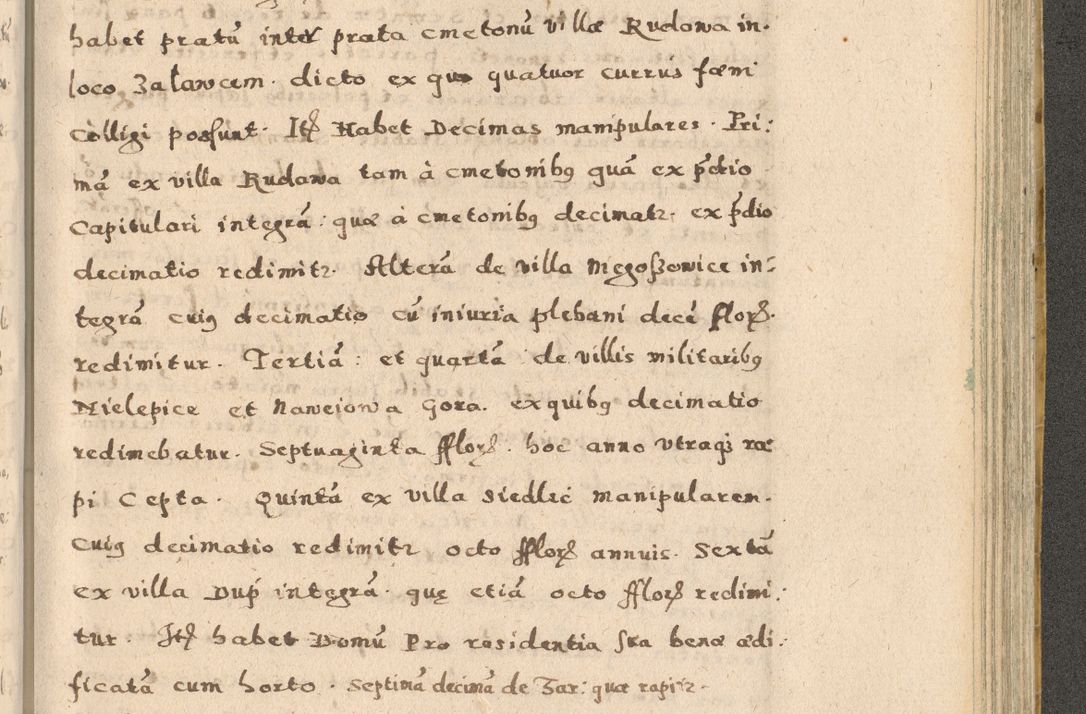 habet pratũ inter prata cmetonũ villæ Rudowa in.
loco Załawcem. dicto ex quo quatuor currus fœni
colligi possunt. Itẽ Habet Decimas manipulares. Pri:
mã ex villa Rudawa tam à cmetonibꝯ quã ex p̃dio
Capitulari integrã: quæ à cmetonibꝯ decimatꝛ. ex p̃dio
decimatio redimitꝛ. Alterã de villa Męgoszowice in:
tegrã cuiꝯ decimatio cũ iniuria plebani decẽ florẽ.
redimitur. Tertiã: et quartã de villis militaribꝯ
Nielepice et Naweiowa Gora. ex quibꝯ decimatio
redimebatur. Septuaginta fflorẽ. hoc anno vtraqꝫ ræ
pi Cepta. Quintã ex villa Siedlec manipularem.
Cuiꝯ decimatio redimitꝛ octo fflorẽ annuis. Sextã
ex villa Dup̃ integrã. quę etiã octo fflorẽ redimi:
tur. Itẽ habet Domũ Pro residentia sua benæ ædi:
ficatã cum horto. Septimã decimã de Zar: quæ rapitꝛ.